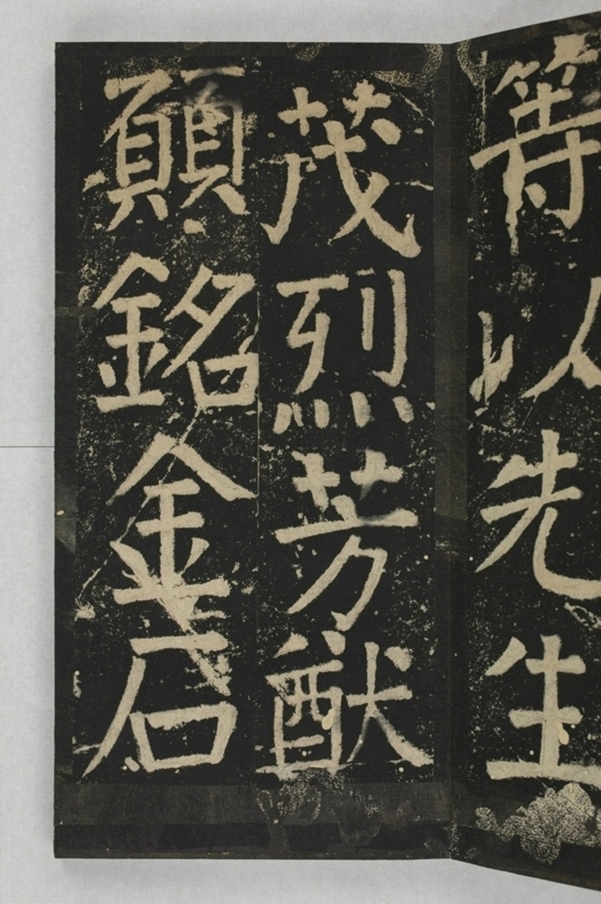 等以先生
茂烈芳猷
願銘金石